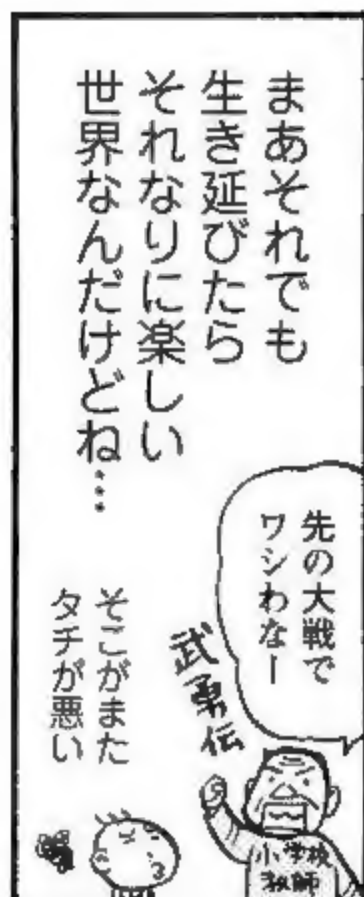 まあそれでも
生き延びたら
それなりに楽しい
世界なんだけどね…
先の大戦で
ワシわなー
武勇伝
小学校
教師
そこがまた
タチが悪い